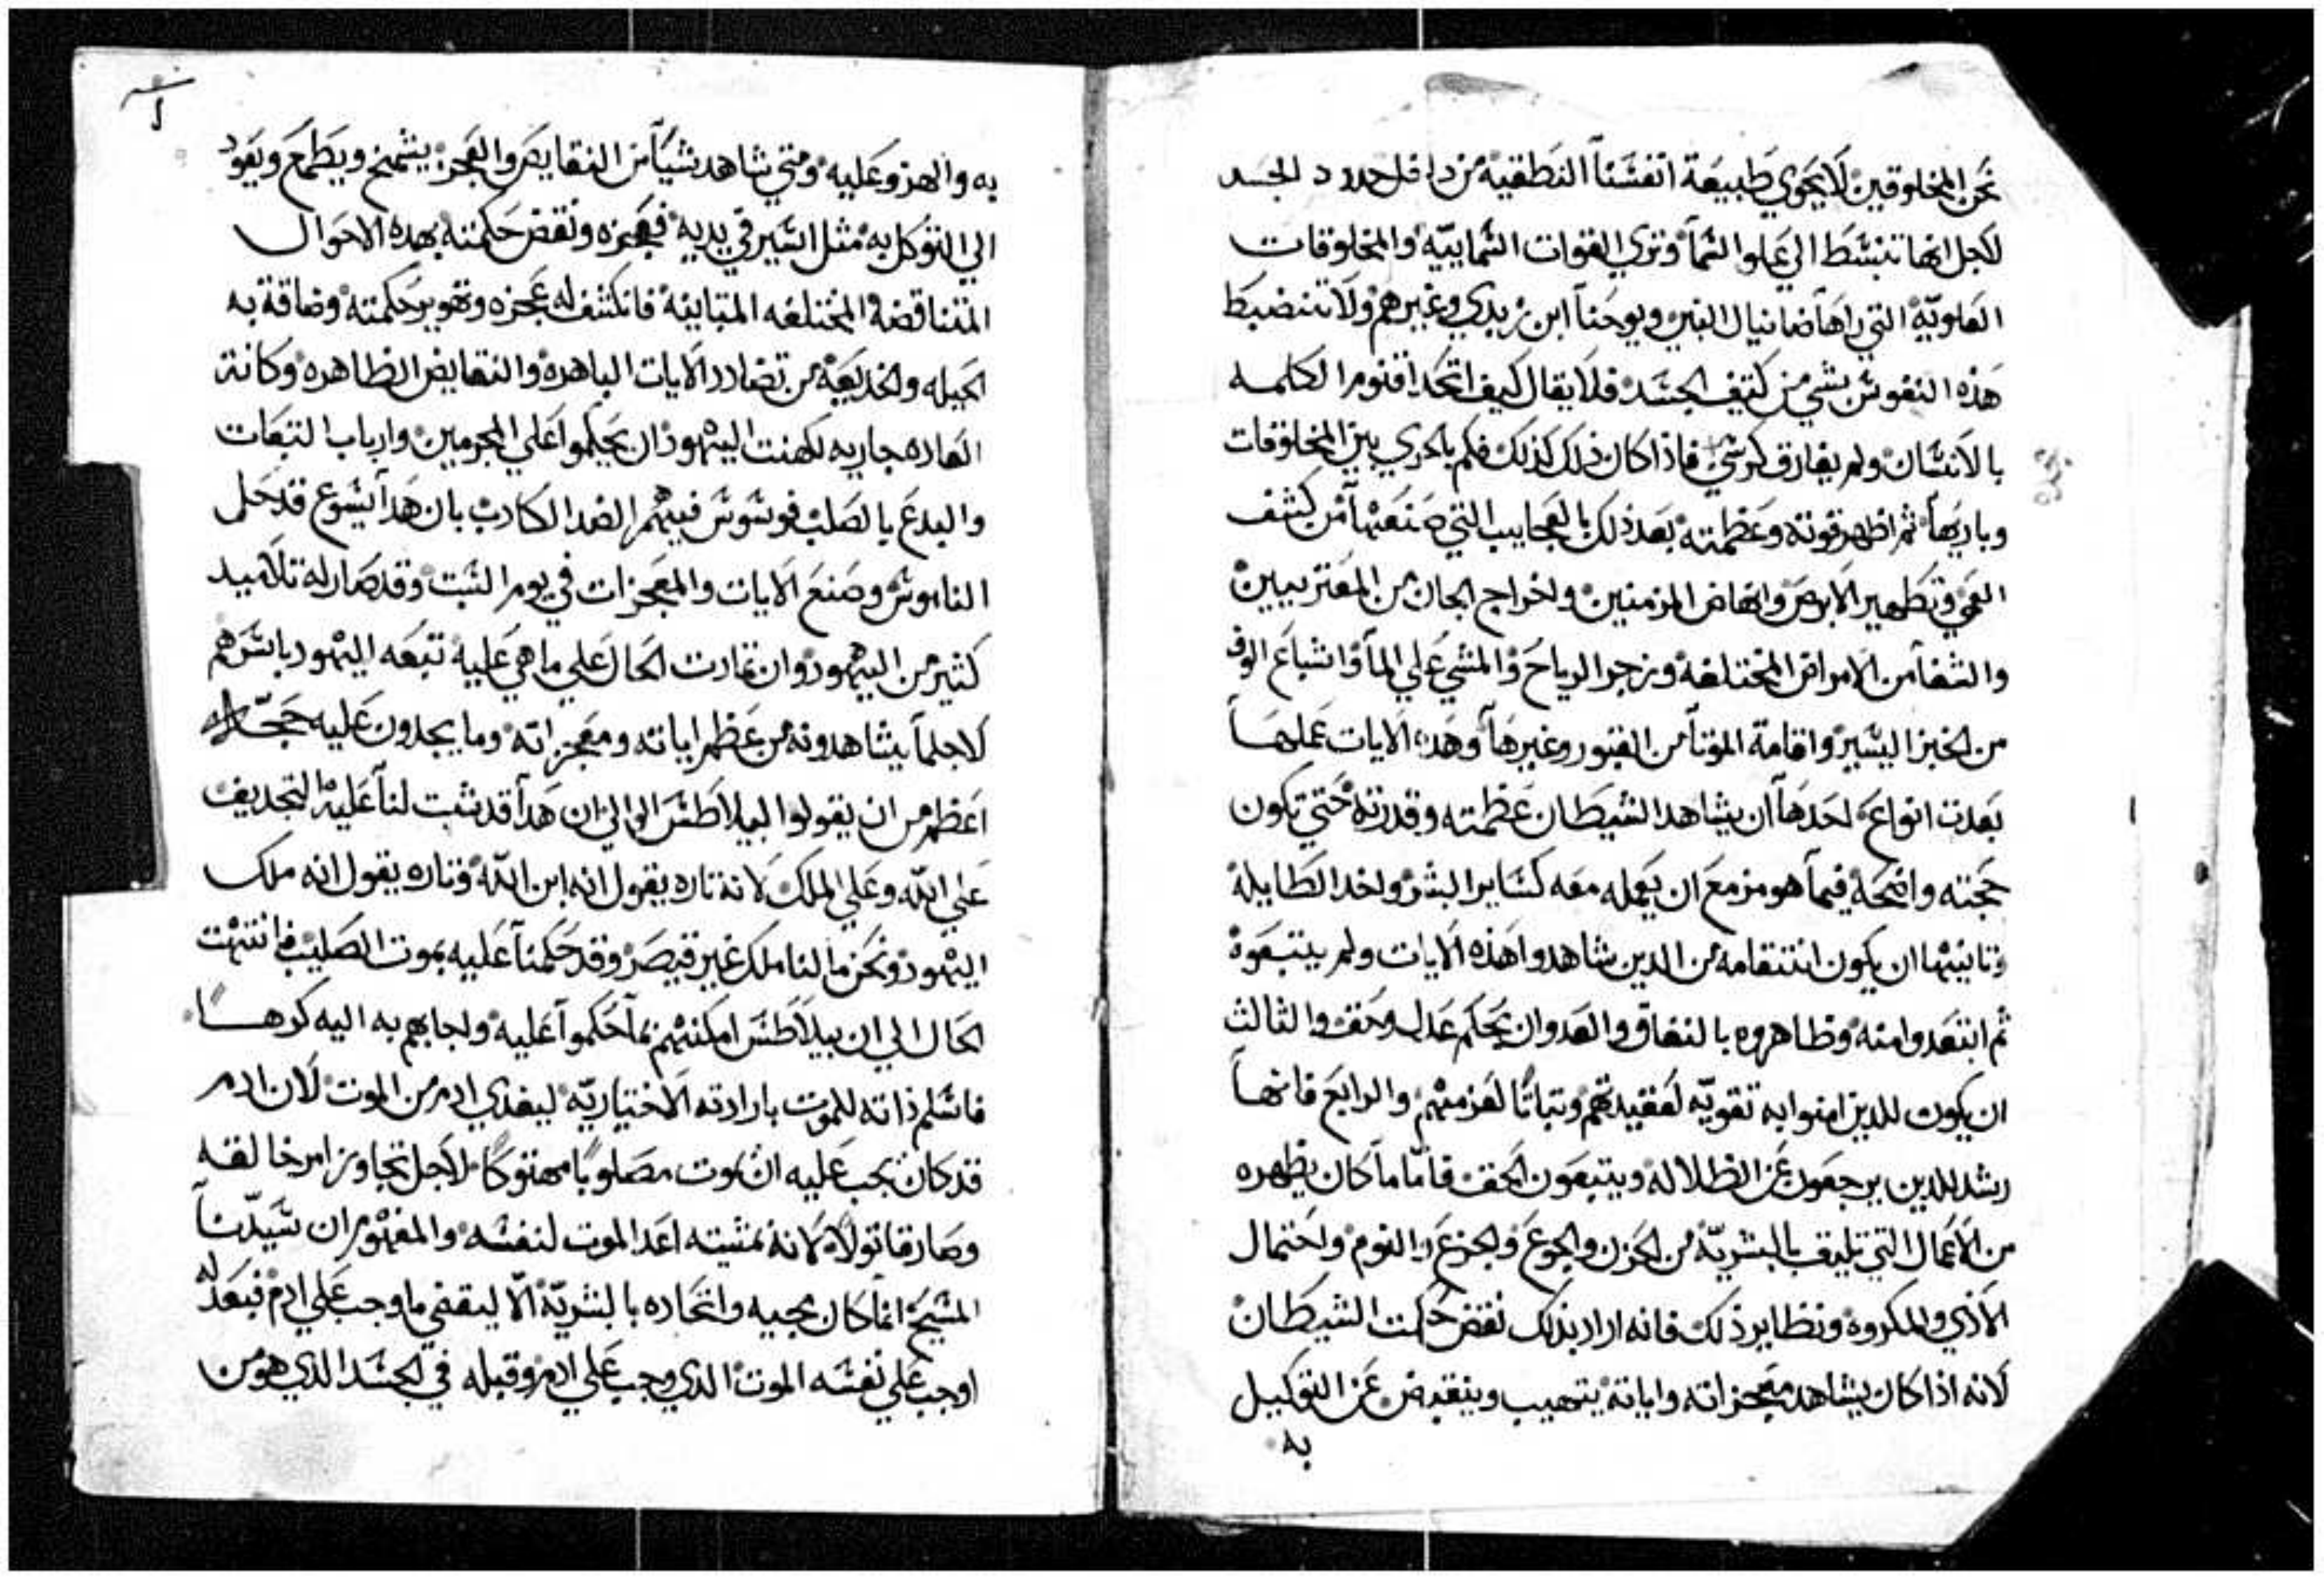 نحن المخلوقين لا يحوي طبيعة انفسنا النطقية من داخل حدود الجسد
لاجل انها تنبسط الي علو السما وتري القوات السماييه والمخلوقات
العلويه التي راها ضانيال النبي ويوحنا ابن زبدي وغيرهم ولا تنضبط
هذه النفوس بشي من كثيف الجسد فلا يقال كيف اتحد اقنوم الكلمه
بالانسان ولم يفارق كرسي فاذا كان ذلك كذلك فكم بالحري بين المخلوقات
وباريها ثم اظهر قوته وعظمته بعد ذلك بالعجايب التي صنعها من كشف
العمي وتطهير الابرص وانهاض المزمنين واخراج الجان من المعتربين
والشفا من الامراض المختلفه وزجر الرياح والمشي علي الما واشباع الوف
من الخبز اليسير واقامة الموتا من القبور وغيرها وهده الايات عملها
بعدت انواع احدها ان يشاهد الشيطان عظمته وقدرته حتي تكون
حجته واضحة فيما هو مزمع ان يعمله معه كساير البشر واخد الطايله
وتانيها ان يكون انتقامه من الدين شاهدوا هذه الايات ولم يتبعوه
ثم ابتعدوا منه وظاهروه بالنفاق والعدوان بحكم عدل وحق والثالث
ان يكون للدين امنوا به تقويه لعقيدتهم وتباتا لعزمهم والرابع فانها
رشد للدين يرجعون عن الظلاله ويتبعون الحق فاما ما كان يظهره
من الاعمال التي تليق بالبشريه من الحزن والجوع والجزع والنوم واحتمال
الاذي والمكروه ونظاير ذلك فانه اراد بذلك نقض حكمت الشيطان
لانه اذا كان يشاهد معجزاته واياته يتهيب وينقبض عن التوكيل
به
به والهزو عليه ومتي شاهد شيا من النقايص والعجز يشمخ ويطمع ويعود
الي التوكل به مثل اسير في يديه فعجزه ونقض حكمته بهده الاحوال
المتناقضه المختلفه المتباينه فانكشف له عجزه وتهوير حكمته وضاقة به
الحيله والخديعة من تضادد الايات الباهره والنقايض الظاهره وكانة
العاده جاريه لكهنت اليهود ان يحكموا علي المجرمين وارباب التبعات
والبدع بالصلب فوسوس فيهم الضد الكادب بان هدا يسوع قد حل
الناموس وصنع الايات والمعجزات في يوم السبت وقد صار له تلاميد
كثير من اليهود وان تمادت الحال علي ما هي عليه تبعه اليهود باسرهم
لاجل ما يشاهدونه من عظم اياته ومعجزاته وما يجدون عليه حجه
اعظم من ان يقولوا لبيلاطس الوالي ان هدا قد ثبت لنا عليه التجديف
علي الله وعلي الملك لانه تاره يقول انه ابن الله وتاره يقول انه ملك
اليهود ونحن ما لنا ملك غير قيصر وقد حكمنا عليه بموت الصليب فانتهت
الحال الي ان بيلاطس امكنهم بما حكموا عليه واجابهم به اليه كرها
فاسلم ذاته للموت بارادته الاختياريه ليفدي ادم من الموت لان ادم
قد كان يجب عليه ان يموت مصلوبا مهتوكا لاجل تجاوز امر خالقه
وصار قاتولاه لانه بمشيته اعد الموت لنفسه والمفهوم ان سيدنا
المسيح انما كان مجيه واتحاده بالبشريه الا ليقضي ما وجب علي ادم فبعدله
اوجب علي نفسه الموت الدي وجب علي ادم وقبله في الجسد الدي هو من